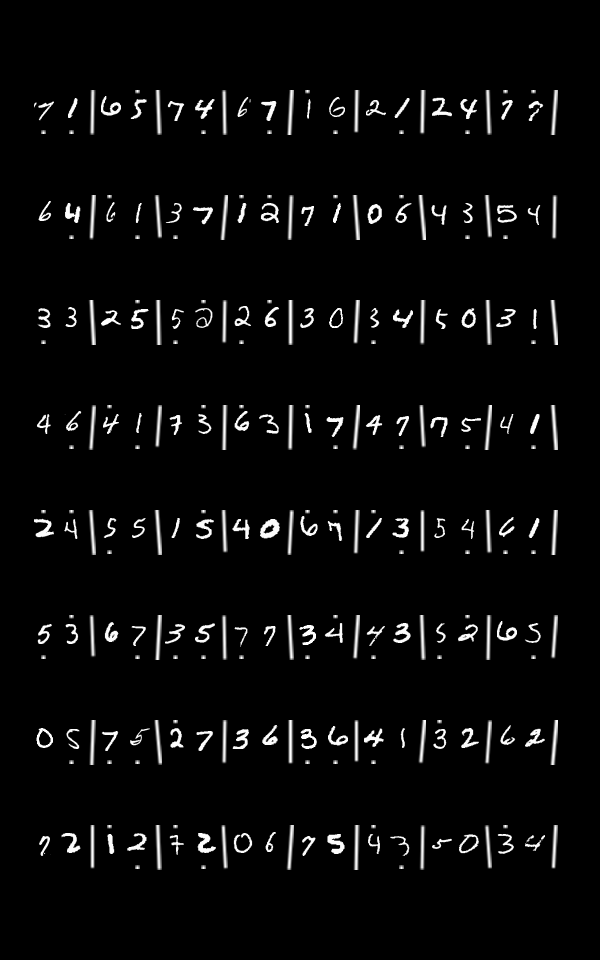 7 1 | 6 5 | 7 4 | 6 7 | 1 6 | 2 1 | 2 4 | 7 7 |
6 4 | 6 1 | 3 7 | 1 2 | 7 1 | 0 6 | 4 3 | 5 4 |
3 3 | 2 5 | 5 2 | 2 6 | 3 0 | 3 4 | 5 0 | 3 1 |
4 6 | 4 1 | 7 3 | 6 3 | 1 7 | 4 7 | 7 5 | 4 1 |
2 4 | 5 5 | 1 5 | 4 0 | 6 7 | 1 3 | 5 4 | 6 1 |
5 3 | 6 7 | 3 5 | 7 7 | 3 4 | 4 3 | 5 2 | 6 5 |
0 5 | 7 5 | 2 7 | 3 6 | 3 6 | 4 1 | 3 2 | 6 2 |
7 2 | 1 2 | 7 2 | 0 6 | 7 5 | 4 3 | 5 0 | 3 4 |